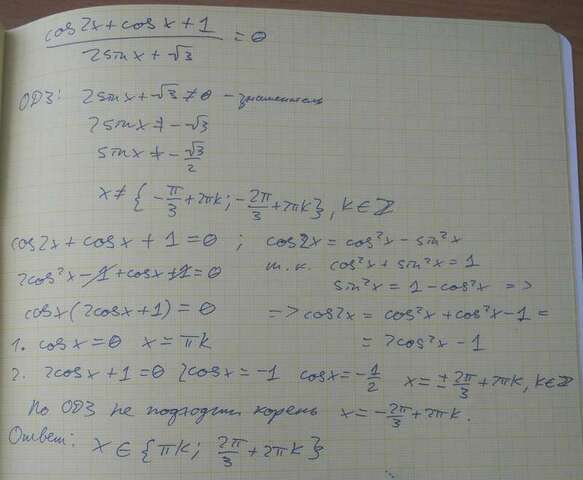 cos2x + cosx + 1
———————— = 0
2sinx + √3
ОДЗ: 2sinx + √3 ≠ 0 - знаменатель
2sinx ≠ -√3
sinx ≠ -√3/2
x ≠ {-π/3 + 2πk; -2π/3 + 2πk}, k ∈ ℤ
cos2x + cosx + 1 = 0 ; cos2x = cos²x - sin²x
2cos²x - 1 + cosx + 1 = 0 т.к. cos²x + sin²x = 1
sin²x = 1 - cos²x =>
cosx(2cosx + 1) = 0 => cos2x = cos²x + cos²x - 1 =
1. cosx = 0 x = πk = 2cos²x - 1
2. 2cosx + 1 = 0 2cosx = -1 cosx = -1/2 x = ±2π/3 + 2πk, k ∈ ℤ
По ОДЗ не подходит корень x = -2π/3 + 2πk.
Ответ: x ∈ {πk; 2π/3 + 2πk}